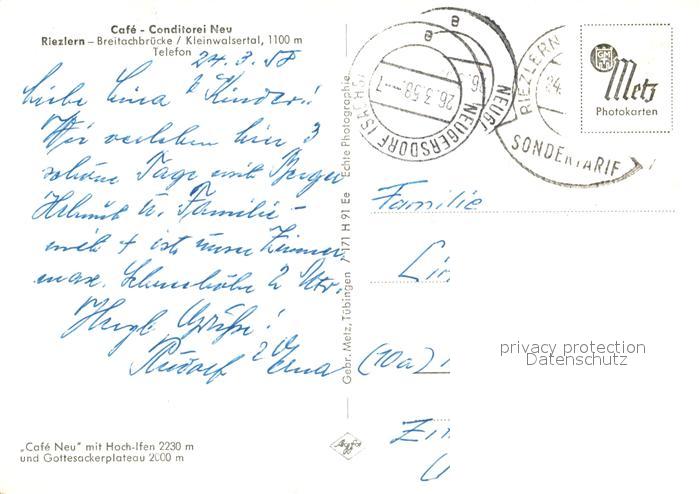 Café - Conditorei Neu
Riezlern – Breitachbrücke / Kleinwalsertal, 1100 m
Telefon
24.3.58
Liebe Lina & Kinder!
Wir verleben hier 3
schöne Tage mit Berger
Helmut u. Familie –
mit + ist unser Zimmer
max. Schneehöhe 2 Mtr.
Herzl. Grüße!
Rudolf & Erna
„Café Neu“ mit Hoch-Ifen 2230 m
und Gottesackerplateau 2000 m
Gebr. Metz, Tübingen 7171 H 91 Ee Echte Photographie
NEUGERSDORF (SACHS)
26.3.58.–7
a
NEUG
RIEZLERN
24.
SONDERTARIF
GMT
Metz
Photokarten
Familie
(10a)
privacy protection
Datenschutz
Agfa